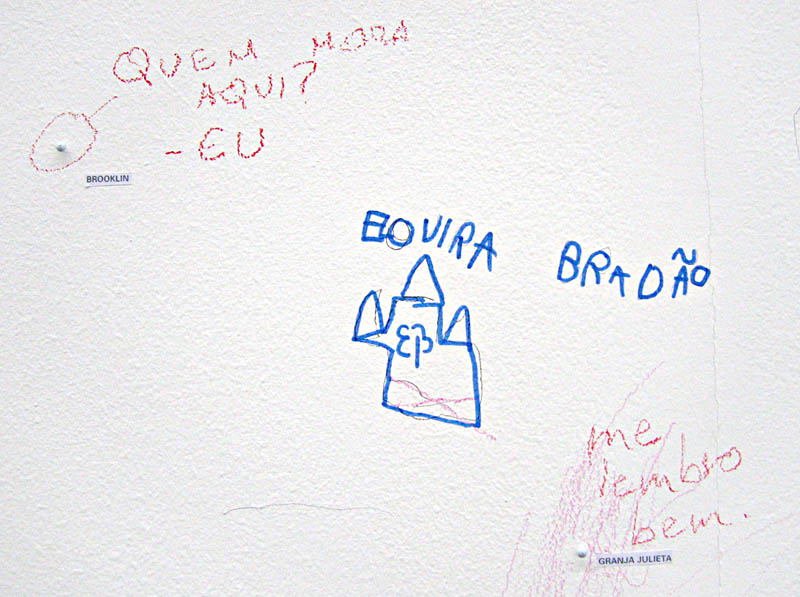 QUEM MORA
AQUI?
- EU
BROOKLIN
EOVIRA BRADÃO
EB
me
lembro
bem.
GRANJA JULIETA